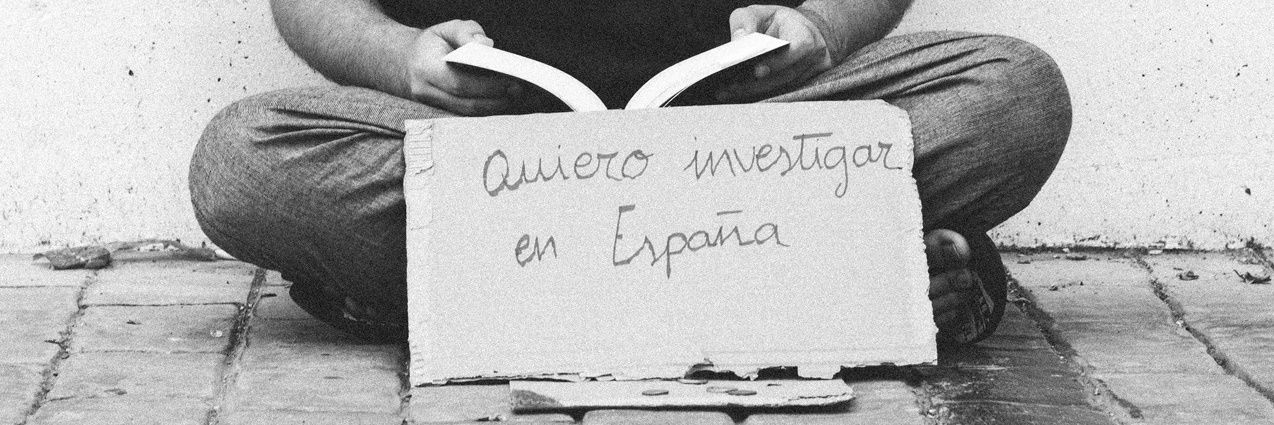 Quiero investigar
en España